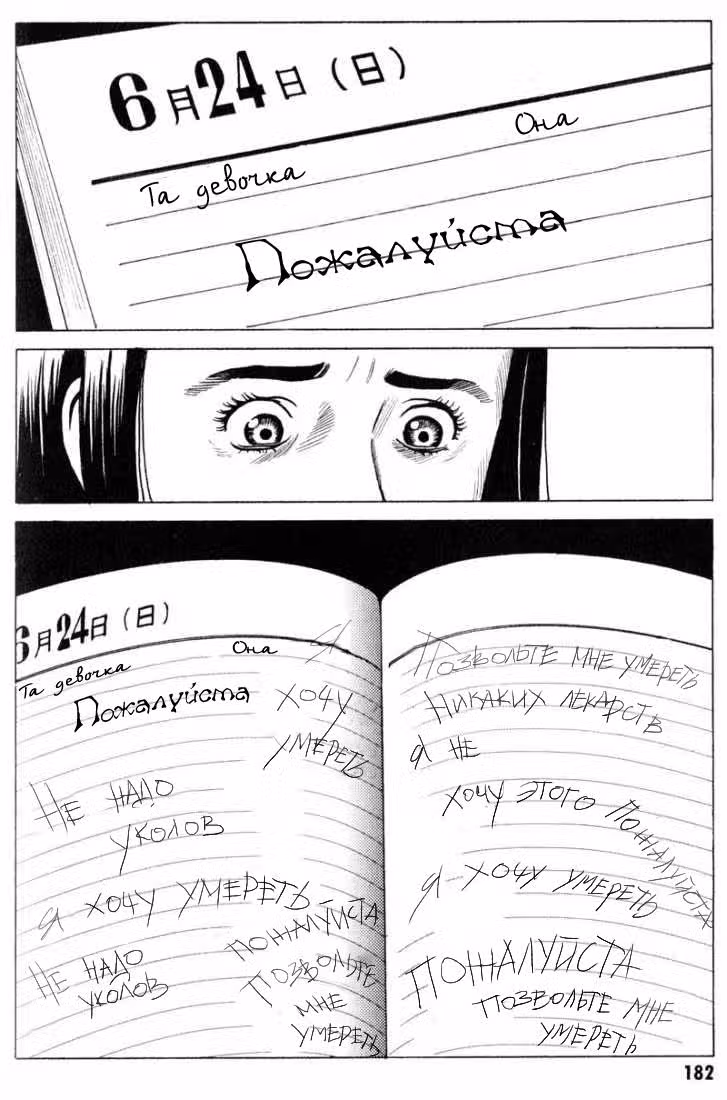 6月24日(日)
Она
Та девочка
Пожалуйста
6月24日(日)
Она
Та девочка
Пожалуйста
Я
хочу
умереть
Не надо
уколов
Я хочу умереть
Не надо
уколов
пожалуйста
Позвольте
мне
умереть
Позвольте мне умереть
Никаких лекарств
Я не
хочу этого
Пожалуйста
Я хочу умереть
Пожалуйста
позвольте мне
умереть
182